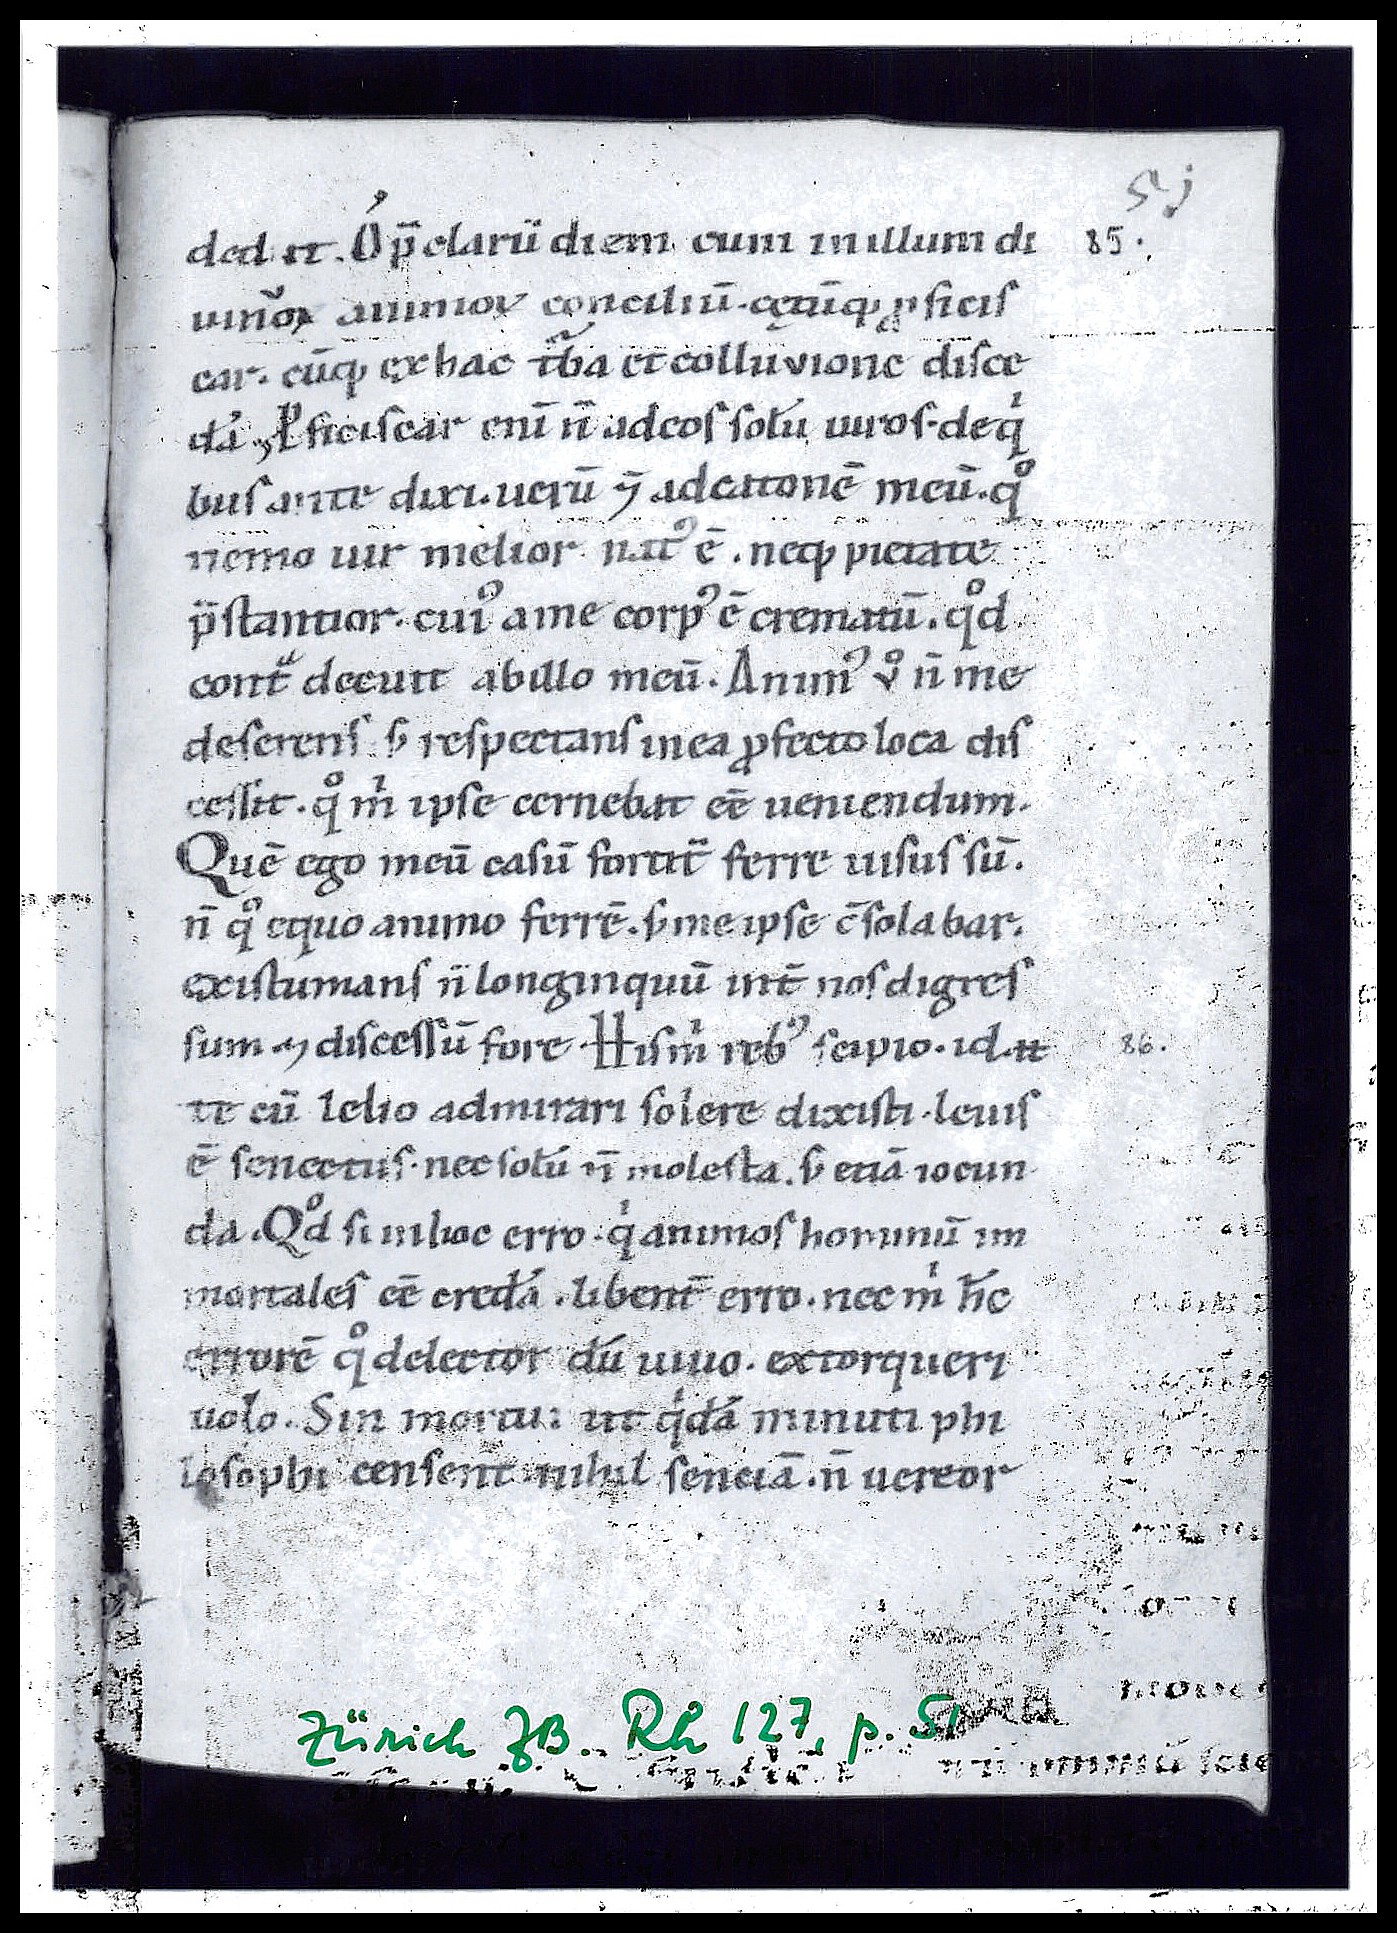 51
dedit. O p̄clarū diem cum in illum di 85.
uinoꝝ animoꝝ conciliū. cętūꝗ ꝓficis
car. cūꝗ ex hac t̄ba et colluvione disce
dā. ⁊ Ꝓficiscar enī n̄ ad eos solū uiros. de qͥ
bus ante dixi. uerū ⁊̄ ad catonē meū. qͦ
nemo uir melior natꝰ ē. neꝗ pietate
p̄stantior. cuiꝰ a me corpꝰ ē crematū. qͦd
contᵃ decuit ab illo meū. Animꝰ vͦ n̄ me
deserens s; respectans in ea ꝓfecto loca dis
cessit. qͦ mͥ ipse cernebat eē ueniendum.
Quē ego meū casū fortit̄ ferre uisus sū.
n̄ qͦ equo animo ferrē. s; me ipse c̄solabar.
existumans n̄ longinquū int̄ nos digres
sum ⁊ discessū fore. Hͥs mͥ rebꝰ scipio. id. t̄t 86.
te cū lelio admirari solere dixisti. leuis
ē senectus. nec solū n̄ molesta. s; etiā iocun
da. Qͦd si in hoc erro. qͥ animos hominū im
mortales eē credā. libent̄ erro. nec mͥ h̄c
errorē qͦ delector dū uiuo. extorqueri
uolo. Sin mortuus ut qͥdā minuti phi
losophi censent nihil senciā. n̄ uereor
Zürich ZB. Rh 127, p. 51